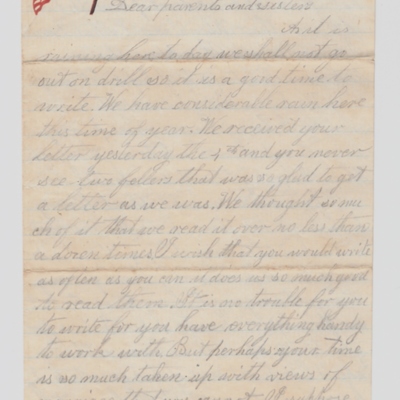 Dear parents and sisters
As it is
raining here to day we shall not go
out on drill so it is a good time to
write. We have considerable rain here
this time of year. We received your
letter yesterday the 4th and you never
see two fellers that was so glad to get
a letter as we was. We thought so mu
ch of it that we read it over no less than
a dozen times. I wish that you would write
as often as you can it does us so much good
to read them. It is no trouble for you
to write for you have everything handy
to work with. But perhaps your time
is so much taken up with views of
that you cannot. I suppose